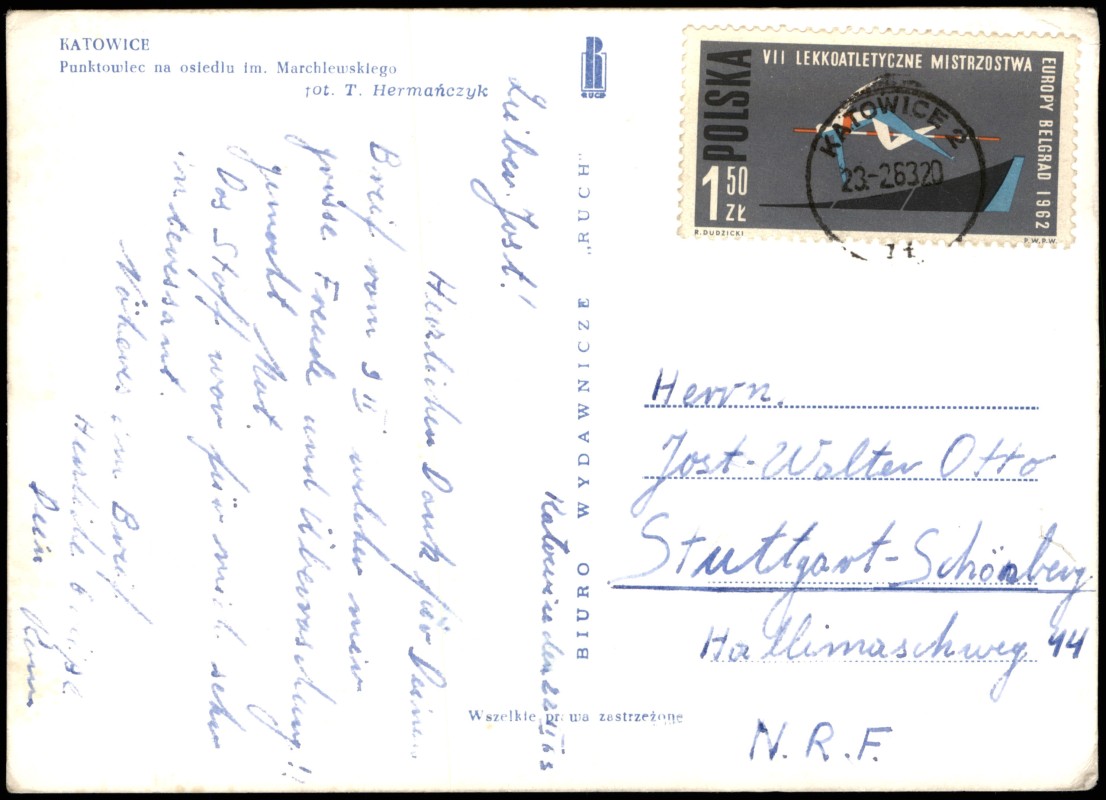 KATOWICE
Punktowiec na osiedlu im. Marchlewskiego
fot. T. Hermańczyk
RUCH
BIURO WYDAWNICZE "RUCH"
Wszelkie prawa zastrzeżone
POLSKA
VII LEKKOATLETYCZNE MISTRZOSTWA
EUROPY BELGRAD 1962
1 50 ZŁ
R. DUDZICKI
P.W.P.W.
KATOWICE 2
23.-2.63.20
1t
Katowice den 22 II 63
Lieber Jost!
Herzlichen Dank für Deinen
Breif vom 9 II welcher mein
grosse Freude und Überraschung!!
gemacht hat
Das Stoff war für mich sehr
interessant.
Näheres im Breif.
Herzliche
Dein
Herrn.
Jost-Walter Otto
Stuttgart-Schönberg
Hallimaschweg 44
N.R.F.